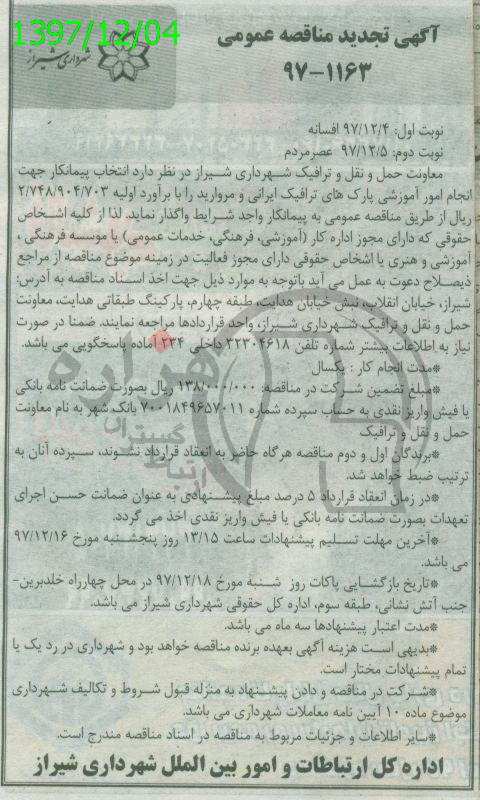 1397/12/04
شهرداری شیراز
آگهی تجدید مناقصه عمومی
۹۷-۱۱۶۳
نوبت اول: ۹۷/۱۲/۴ افسانه
نوبت دوم: ۹۷/۱۲/۵ عصرمردم
معاونت حمل و نقل و ترافیک شهرداری شیراز در نظر دارد انتخاب پیمانکار جهت
انجام امور آموزشی پارک های ترافیک ایرانی و مروارید را با برآورد اولیه ۲/۷۴۸/۹۰۴/۷۰۳
ریال از طریق مناقصه عمومی به پیمانکار واجد شرایط واگذار نماید. لذا از کلیه اشخاص
حقوقی که دارای مجوز اداره کار (آموزشی، فرهنگی، خدمات عمومی) یا موسسه فرهنگی ،
آموزشی و هنری یا اشخاص حقوقی دارای مجوز فعالیت در زمینه موضوع مناقصه از مراجع
ذیصلاح دعوت به عمل می آید باتوجه به موارد ذیل جهت اخذ اسناد مناقصه به آدرس:
شیراز، خیابان انقلاب، نبش خیابان هدایت، طبقه چهارم، پارکینگ طبقاتی هدایت، معاونت
حمل و نقل و ترافیک شهرداری شیراز، واحد قراردادها مراجعه نمایند. ضمنا در صورت
نیاز به اطلاعات بیشتر شماره تلفن ۳۲۳۰۴۶۱۸ داخلی ۲۳۴ آماده پاسخگویی می باشد.
*مدت انجام کار : یکسال
*مبلغ تضمین شرکت در مناقصه: ۱۳۸/۰۰۰/۰۰۰ ریال بصورت ضمانت نامه بانکی
یا فیش واریز نقدی به حساب سپرده شماره ۷۰۰۱۸۴۹۶۵۷۰۱۱ بانک شهر به نام معاونت
حمل و نقل و ترافیک
*برندگان اول و دوم مناقصه هرگاه حاضر به انعقاد قرارداد نشوند، سپرده آنان به
ترتیب ضبط خواهد شد.
*در زمان انعقاد قرارداد ۵ درصد مبلغ پیشنهادی به عنوان ضمانت حسن اجرای
تعهدات بصورت ضمانت نامه بانکی یا فیش واریز نقدی اخذ می گردد.
*آخرین مهلت تسلیم پیشنهادات ساعت ۱۳/۱۵ روز پنجشنبه مورخ ۹۷/۱۲/۱۶
می باشد.
*تاریخ بازگشایی پاکات روز شنبه مورخ ۹۷/۱۲/۱۸ در محل چهارراه خلدبرین-
جنب آتش نشانی، طبقه سوم، اداره کل حقوقی شهرداری شیراز می باشد.
*مدت اعتبار پیشنهادها سه ماه می باشد.
*بدیهی است هزینه آگهی بعهده برنده مناقصه خواهد بود و شهرداری در رد یک یا
تمام پیشنهادات مختار است.
*شرکت در مناقصه و دادن پیشنهاد به منزله قبول شروط و تکالیف شهرداری
موضوع ماده ۱۰ آیین نامه معاملات شهرداری می باشد.
*سایر اطلاعات و جزئیات مربوط به مناقصه در اسناد مناقصه مندرج است.
اداره کل ارتباطات و امور بین الملل شهرداری شیراز
هزاره
گستران
ارتباط